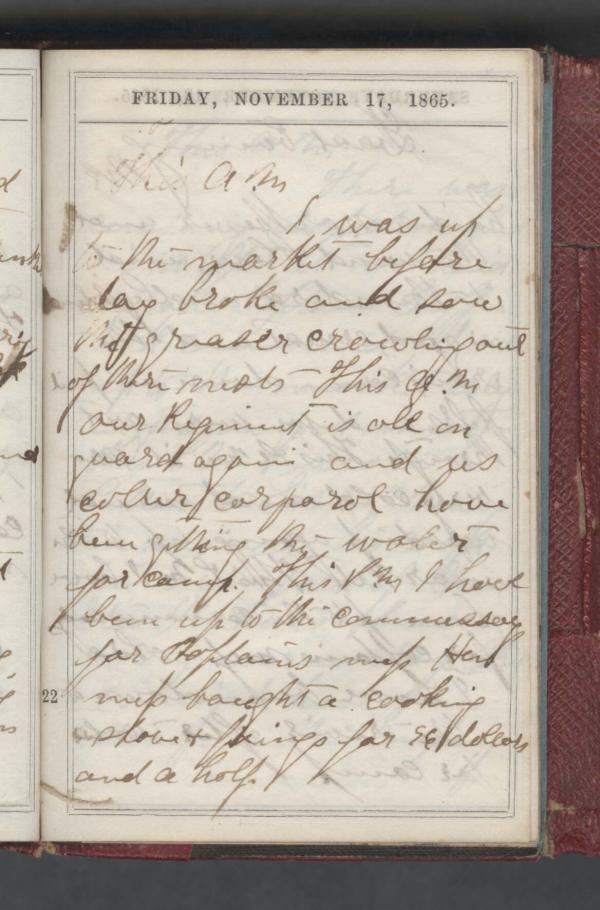 FRIDAY, NOVEMBER 17, 1865.
This A M
I was up
to the market before
day broke and saw
the greaser crowling out
of their nests This A. M
our Regiment is all on
guard again and us
coller corparol have
been getting the water
for camp. This P M I have
been up to the commessary
for Coplains mess Her
mess baught a cooking
stove & fixings for 56 dollars
and a half.
22